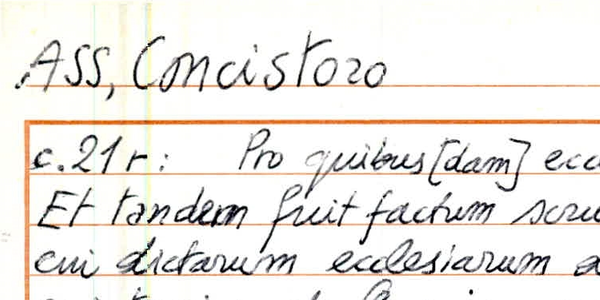 ASS, Concistoro
c.21r: Pro quibus[dam]
Et tandem fuit factum
cui dictarum ecclesiarum